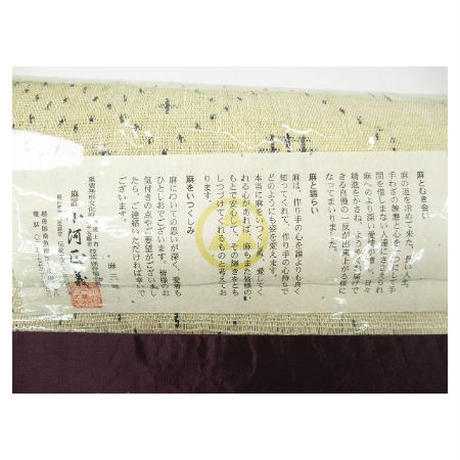 麻とむき会い
麻の道を求めて来た、長い人生。
手わざの練磨と心を一つにして手
間を惜しまない人達にささえられ
麻へのより深い愛情が募り、日々
精進をかさね、ようやくお届けで
きる自慢の一反が出来上がる様に
なってまいりました。
麻と語らい
麻は、作り手の心を誰よりも良く
知ってくれて、作り手の心持ちで
どのようにも姿を変えます。
本当に麻をいつくしみ、愛してく
れる心があれば、麻もまた皆様の
もとで安心して、その輝きをとも
しつづけてくれるものと考えてお
ります。
麻をいつくしみ
麻についての思いが深く、愛着も
ひとしおでございます。皆様のお
気付きの点やご要望がございまし
たら、ご連絡いただければ幸いで
ございます。
重要無形文化財
小河正義